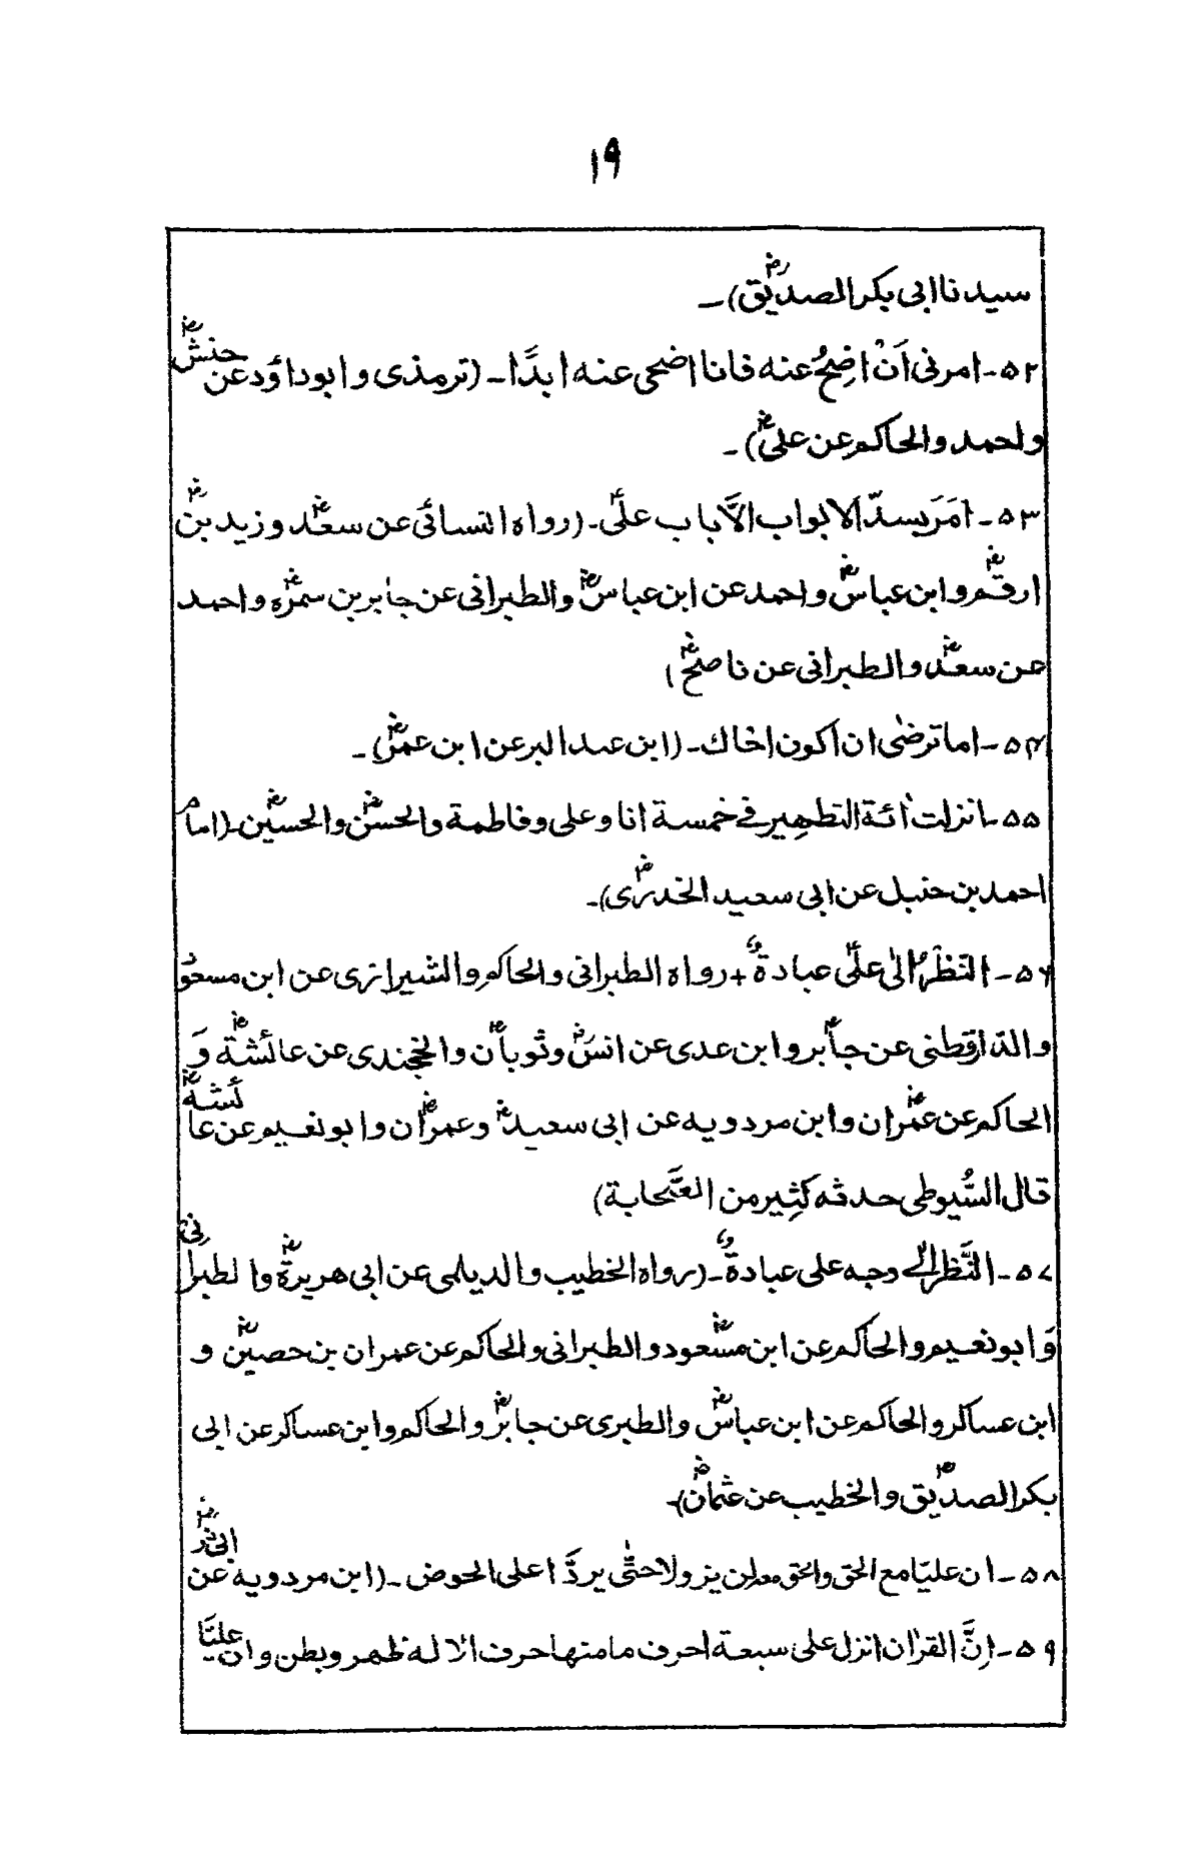 ۱۹
سیدنا ابی بکر الصدیقؓ)۔
۵۲۔ امرنی اَنْ اضِحُ عنه فانا اضحی عنه ابدًا۔ (ترمذی و ابوداؤد عن حنشؓ
واحمد والحاکم عن علیؓ)۔
۵۳۔ اَمَرَ بسدّ الابواب الاَّ باب علیؑ۔ (رواه النسائی عن سعدؓ و زید بنؓ
ارقمؓ و ابن عباسؓ و احمد عن ابن عباسؓ والطبرانی عن جابر بن سمرؓه و احمد
عن سعدؓ والطبرانی عن ناصحؓ)
۵۴۔ اما ترضٰی ان اکون اخاك۔ (ابن عبد البر عن ابن عمرؓ)۔
۵۵۔ انزلت اٰئة التطهیر فے خمسة انا و علی و فاطمة والحسنؓ والحسینؓ۔ (امام
احمد بن حنبل عن ابی سعید الخدریؓ)۔
۵۶۔ النَّظْرُ الیٰ علیؑ عبادةٌ + رواه الطبرانی والحاکم والشیرازی عن ابن مسعودؓ
والدّارقطنی عن جابرؓ و ابن عدی عن انسؓ و ثوبانؓ والخجندی عن عائشةؓ وَ
الحاکم عن عمرؓان و ابن مردویه عن ابی سعیدؓ و عمرانؓ و ابو نعیم عن عائشةؓ
قال السُّیوطی حدثه کثِیر من الصَّحابة)
۵۷۔ النَّظر الیٰ وجه علی عبادةٌ۔ (رواه الخطیب والدیلمی عن ابی هریرةؓ والطبرانی
وَ ابو نعیم والحاکم عن ابن مسعودؓ والطبرانی والحاکم عن عمران بن حصینؓ و
ابن عساکر والحاکم عن ابن عباسؓ والطبری عن جابرؓ والحاکم و ابن عساکر عن ابی
بکر الصدیقؓ والخطیب عن عثمانؓ)۔
۵۸۔ ان علیّا مع الحق والحق معه لن یزولا حتّٰی یردَّا علی الحوض۔ (ابن مردویه عن ابی ذرؓ
۵۹۔ اِنَّ القراٰن انزل علی سبعة احرف ما منها حرف الا له ظهر و بطن و ان علیًّا